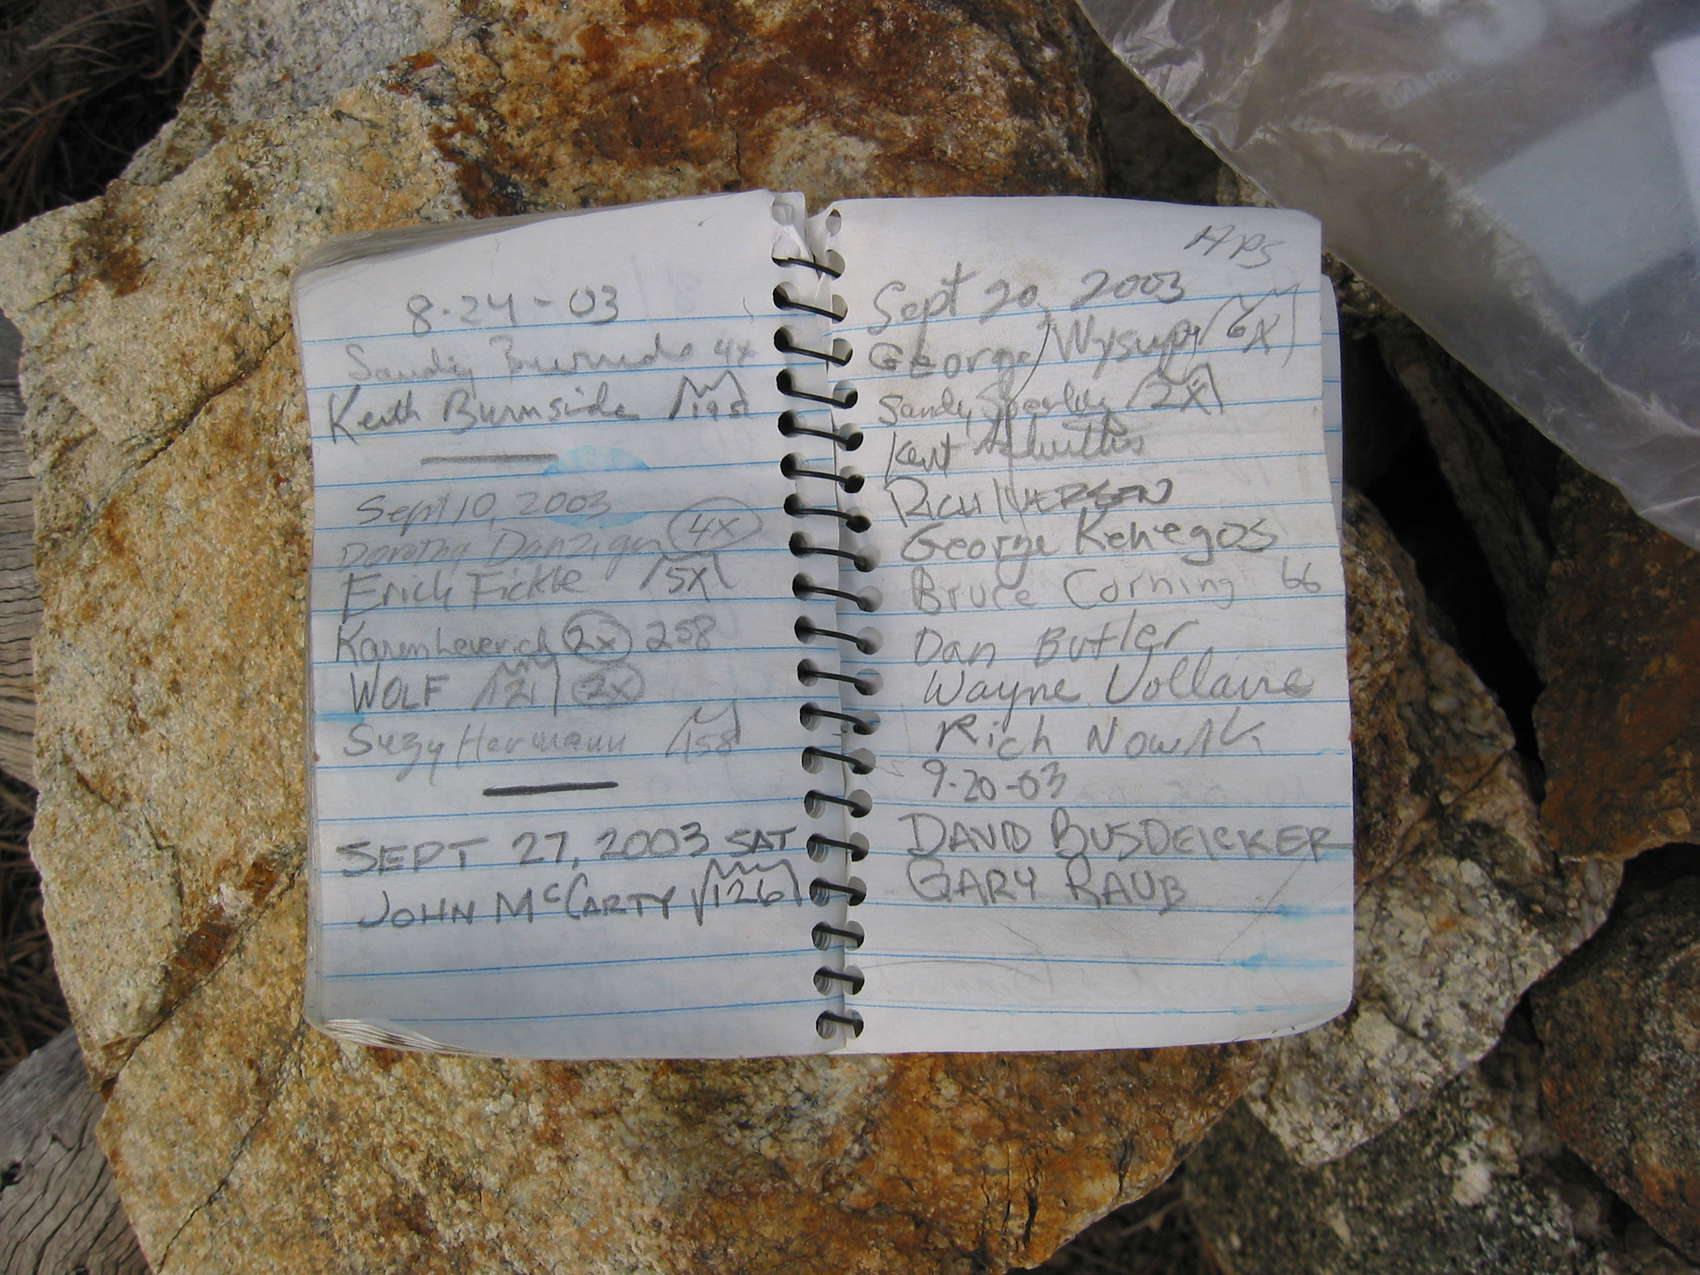 8-24-03
Sandy Burnside 4x
Keith Burnside 195
Sept 10, 2003
Dorothy Danziger 4x
Erich Fickle 5x
Karen Leverich 2x 258
WOLF 121 2x
Suzy Hermann 158
SEPT 27, 2003 SAT
JOHN McCARTY 126
HPS
Sept 20, 2003
George Wysup 6x
Sandy 2x
Kent
RICH IVERSEN
George Kenegos
Bruce Corning 66
Dan Butler
Wayne Vollaire
Rich Nowak
9-20-03
DAVID BUSDEICKER
GARY RAUB